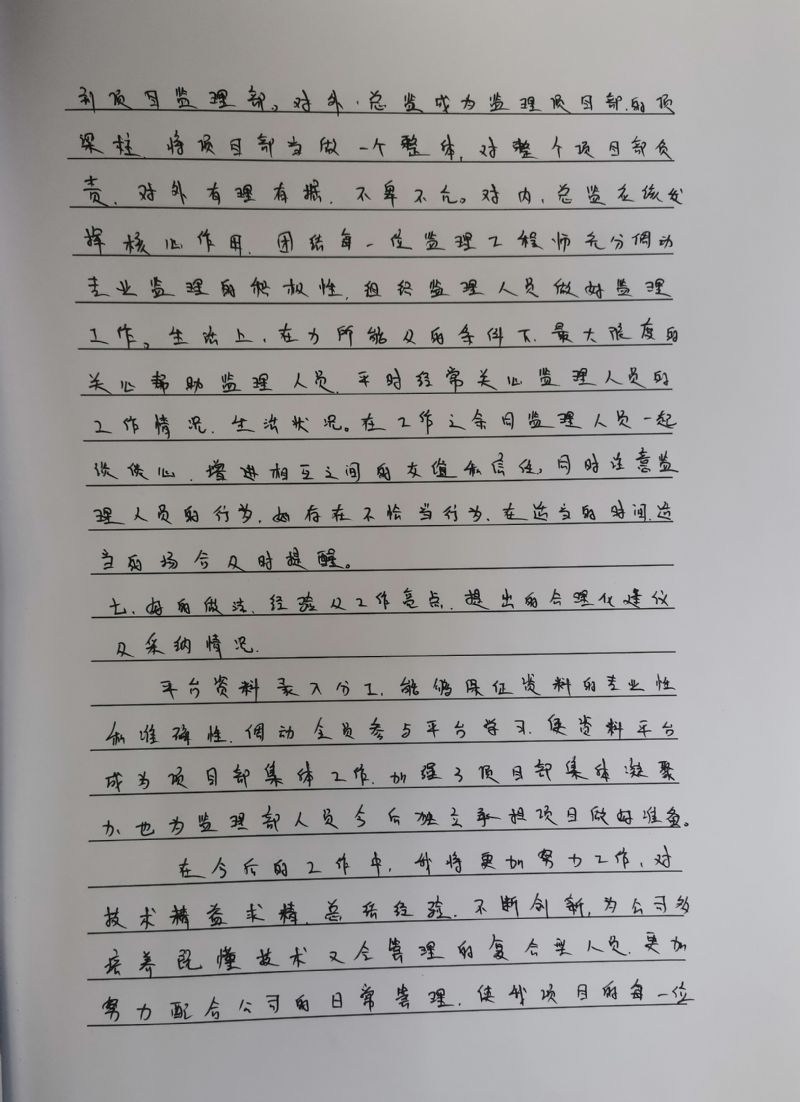 到项目监理部。对外，总监成为监理项目部的顶
梁柱，将项目部当做一个整体，对整个项目部负
责，对外有理有据，不卑不亢。对内，总监应该发
挥核心作用，团结每一位监理工程师充分调动
专业监理的积极性，组织监理人员做好监理
工作。生活上，在力所能及的条件下，最大限度的
关心帮助监理人员，平时经常关心监理人员的
工作情况，生活状况。在工作之余同监理人员一起
谈谈心，增进相互之间的友谊和信任，同时注意监
理人员的行为，如存在不恰当行为，在适当的时间，适
当的场合及时提醒。
七、好的做法、经验及工作亮点，提出的合理化建议
及采纳情况。
平台资料录入分工，能够保证资料的专业性
和准确性，调动全员参与平台学习，使资料平台
成为项目部集体工作，加强了项目部集体凝聚
力，也为监理部人员今后独立承担项目做好准备。
在今后的工作中，我将更加努力工作，对
技术精益求精，总结经验，不断创新，为公司多
培养既懂技术又会管理的复合型人员，更加
努力配合公司的日常管理，使我项目的每一位